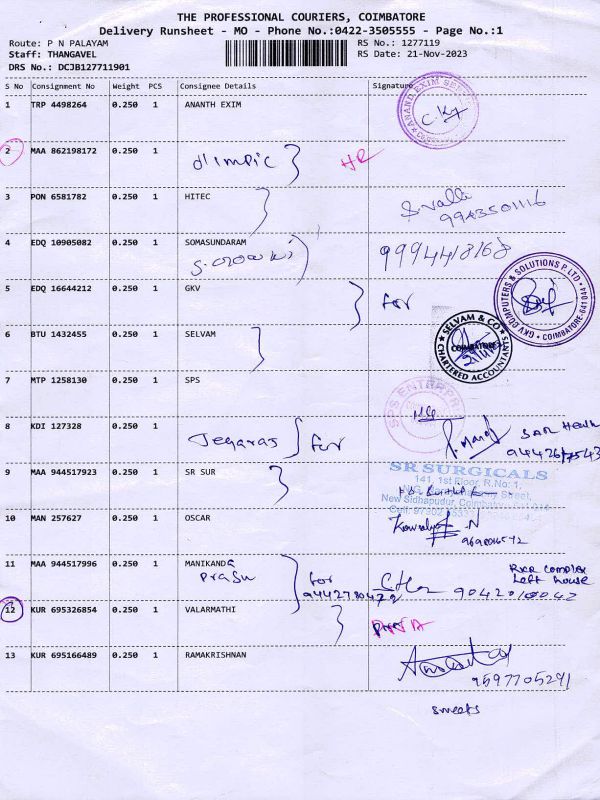 THE PROFESSIONAL COURIERS, COIMBATORE
Delivery Runsheet - MO - Phone No.:0422-3505555 - Page No.:1
Route: P N PALAYAM
Staff: THANGAVEL
DRS No.: DCJB127711901
RS No.: 1277119
RS Date: 21-Nov-2023
S No Consignment No Weight PCS Consignee Details Signature
1 TRP 4498264 0.250 1 ANANTH EXIM
2 MAA 862198172 0.250 1 olimpic HR
3 PON 6581782 0.250 1 HITEC S. Valli
9943501116
4 EDQ 10905082 0.250 1 SOMASUNDARAM
9994418168
5 EDQ 16644212 0.250 1 GKV for
GKV COMPUTERS & SOLUTIONS P.LTD
COIMBATORE-641044
6 BTU 1432455 0.250 1 SELVAM
SELVAM & CO
COIMBATORE
CHARTERED ACCOUNTANTS
7 MTP 1258130 0.250 1 SPS
SPS ENTERPR
8 KDI 127328 0.250 1 Jegaraj for
9 MAA 944517923 0.250 1 SR SUR
SR SURGICALS
141, 1st Floor, R.No: 1,
Street,
New Sidhapudur, Coimbatore
10 MAN 257627 0.250 1 OSCAR
11 MAA 944517996 0.250 1 MANIKANDA
Prabu for
9442780472
Complex
Left house
12 KUR 695326854 0.250 1 VALARMATHI
13 KUR 695166489 0.250 1 RAMAKRISHNAN
9597705291
sweets